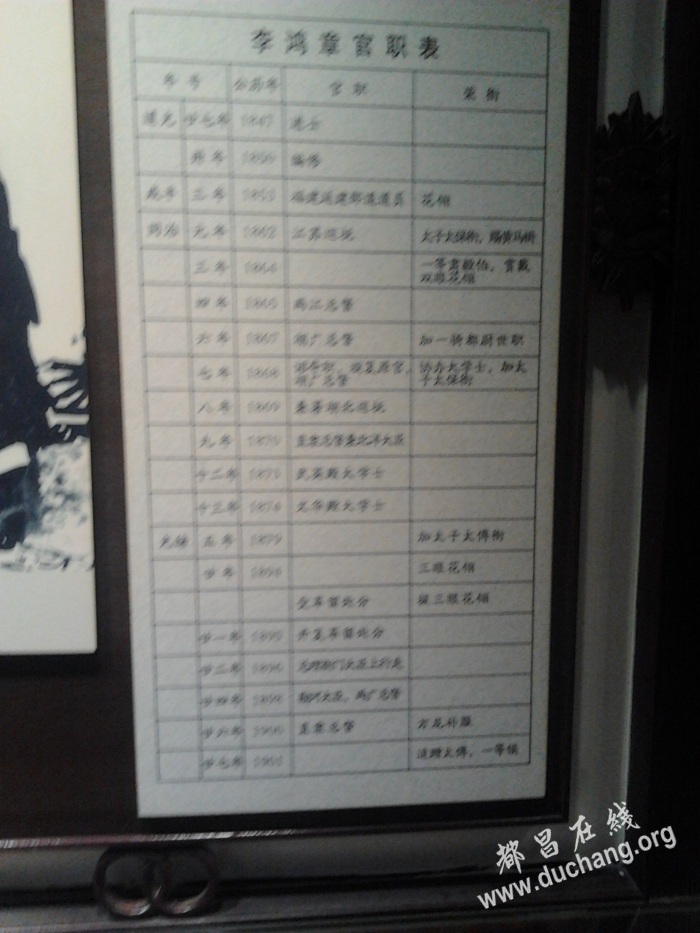 李鸿章官职表
年 号 公历年 官 职 荣 衔
道光 廿七年 1847 进士
卅年 1850 编修
咸丰 三年 1853 福建延建邵道道员 花翎
同治 元年 1862 江苏巡抚 太子太保衔，赐黄马褂
三年 1864 一等肃毅伯，赏戴
双眼花翎
四年 1865 两江总督
六年 1867 湖广总督 加一骑都尉世职
七年 1868 协办大学士，加太
湖广总督 子太保衔
八年 1869 兼署湖北巡抚
九年 1870 直隶总督兼北洋大臣
十二年 武英殿大学士
十三年 1874 文华殿大学士
光绪 五年 1879 加太子太傅衔
廿年 1894 三眼花翎
全革留处分 拔三眼花翎
廿一年 1895 开复革留处分
廿二年 1896 总理衙门大臣上行走
廿四年 1898 勘河大臣，两广总督
廿六年 1900 直隶总督 方龙补服
廿七年 1901 追赠太傅，一等侯
都昌在线
www.duchang.org